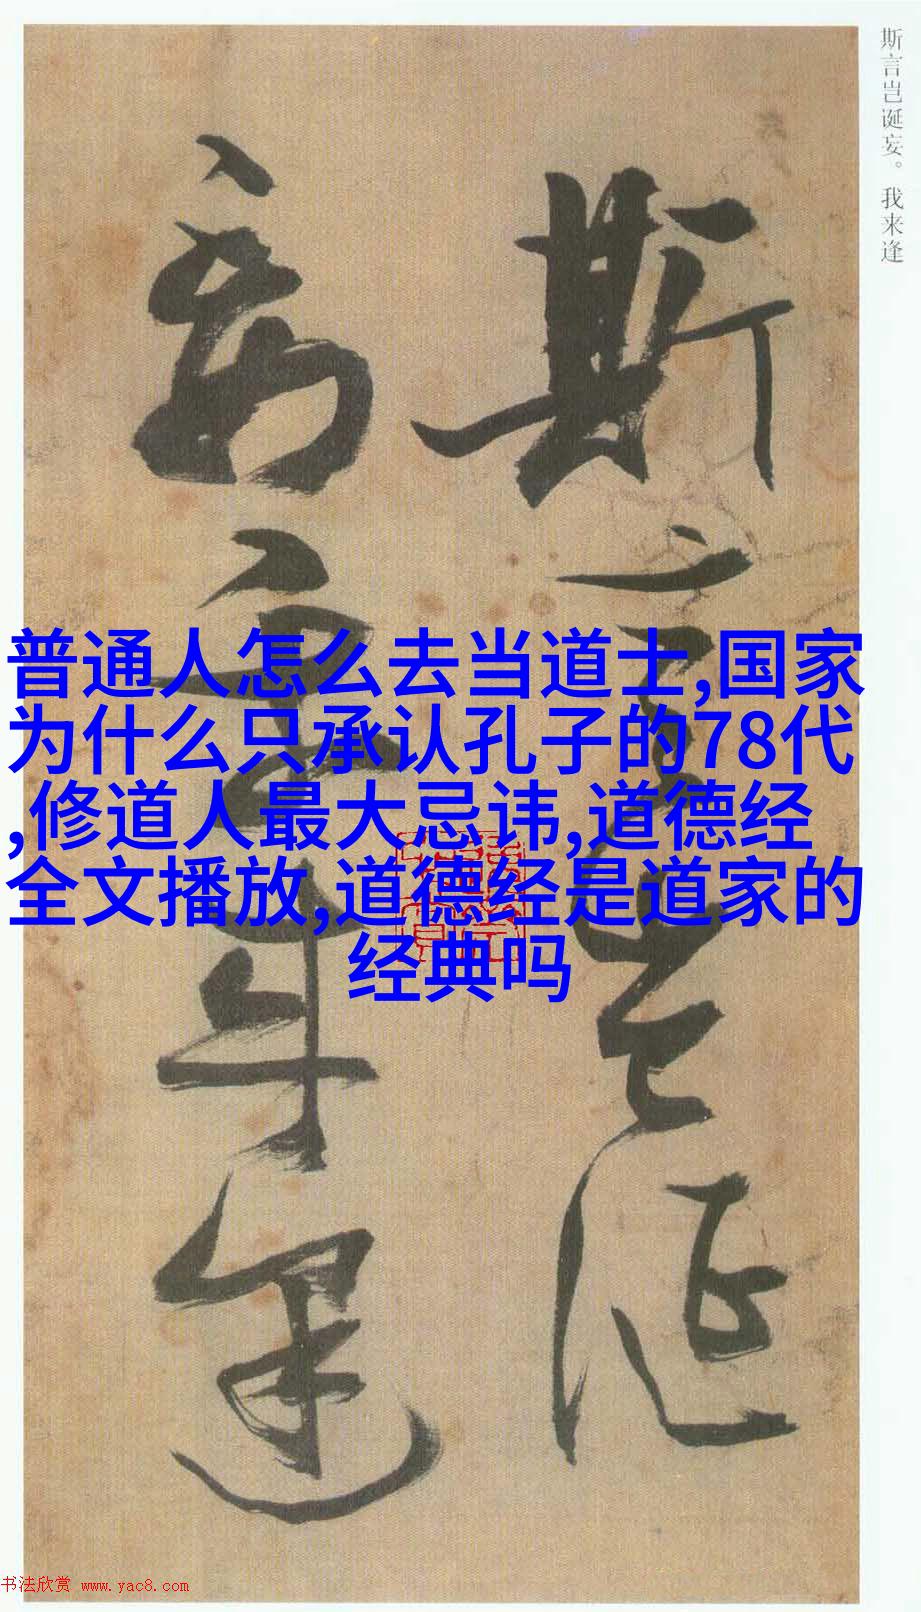 斯言岂诞妄。我来逢
斯言岂诞
妄我来逢
普通人怎么去当道士,国家
为什么只承认孔子的78代
,修道人最大忌讳,道德经
全文播放,道德经是道家的
经典吗
书法欣赏 www.yac8.com